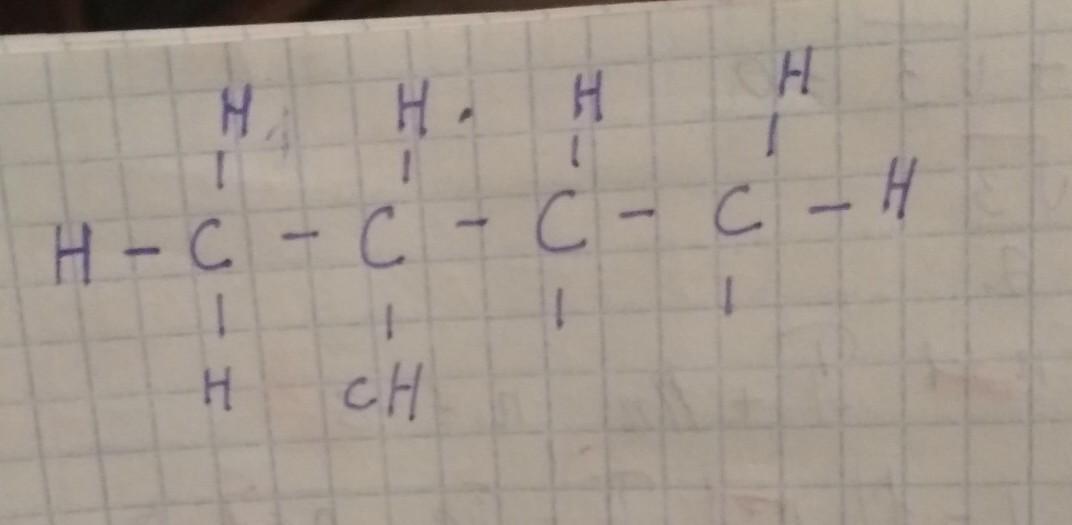 H H H H
H - C - C - C - C - H
H CH